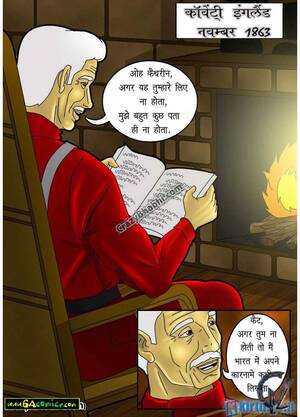 कॉवेंट्री इंगलैंड
नवम्बर 1863
ओह कैथरीन,
अगर यह तुम्हारे लिए
ना होता,
मुझे बहुत कुछ पता
ही ना होता.
Crazybhabhi.com
कैट,
अगर तुम ना
होती तो मैं
भारत में अपने
कारनामे
www.GAcomics.com